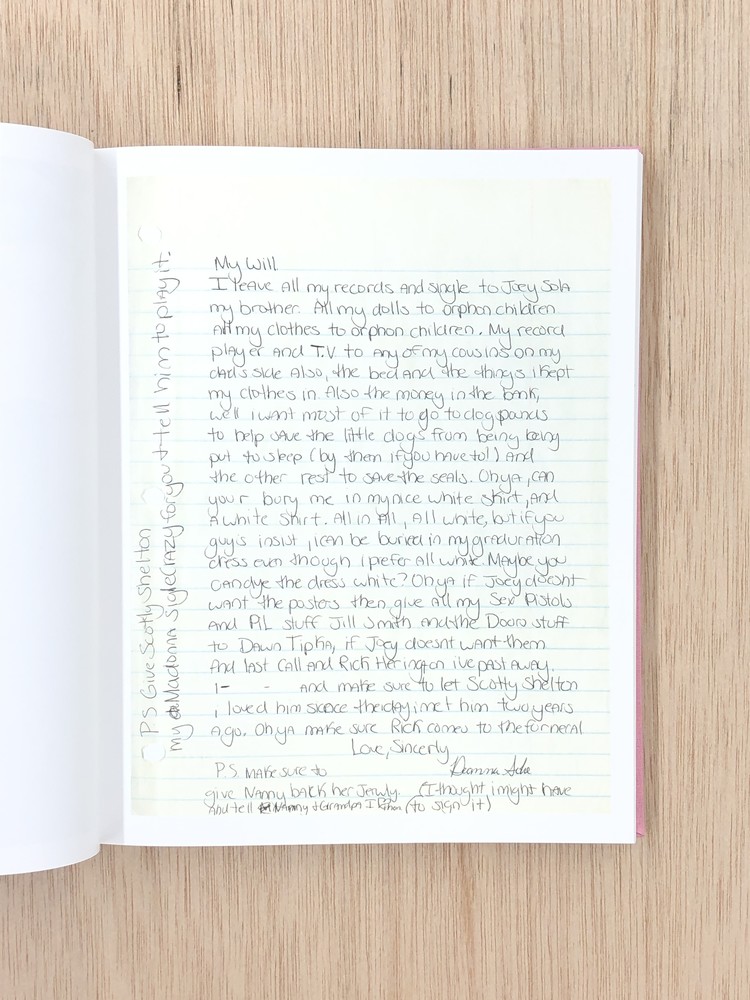 My Will
I leave All my records And single to Joey Sola
my brother. All my dolls to orphon children
All my clothes to orphon children. My record
player And T.V. to Any of my cousins on my
dad's side Also, the bed and the things i kept
my clothes in. Also the money in the bank,
well i want most of it to go to dog pounds
to help save the little dogs from being being
put to sleep (by them if you have to!) And
the other rest to save the seals. Oh ya, can
your bury me in my nice white shirt, And
A white skirt. All in All, All white, but if you
guys insist, i can be buried in my graduration
dress even though i prefer All white. Maybe you
can dye the dress white? Oh ya if Joey doesnt
want the postors then give all my Sex Pistols
And PIL stuff Jill Smith and the Doors stuff
to Dawn Tipka, if Joey doesnt want them
And last Call And Rich Herington ive past away.
And make sure to let Scotty Shelton
, I loved him since the day i met him two years
Ago. Oh ya make sure Rick comes to the funeral
Love, Sincerly
P.S. make sure to
Deanna
give Nanny back her Jerwly. (I thought i might have
And tell Nanny & Grandpa I (to sign it)
PS Give Scotty Shelton
my Madonna Sigle Crazy for you & tell him to play it.